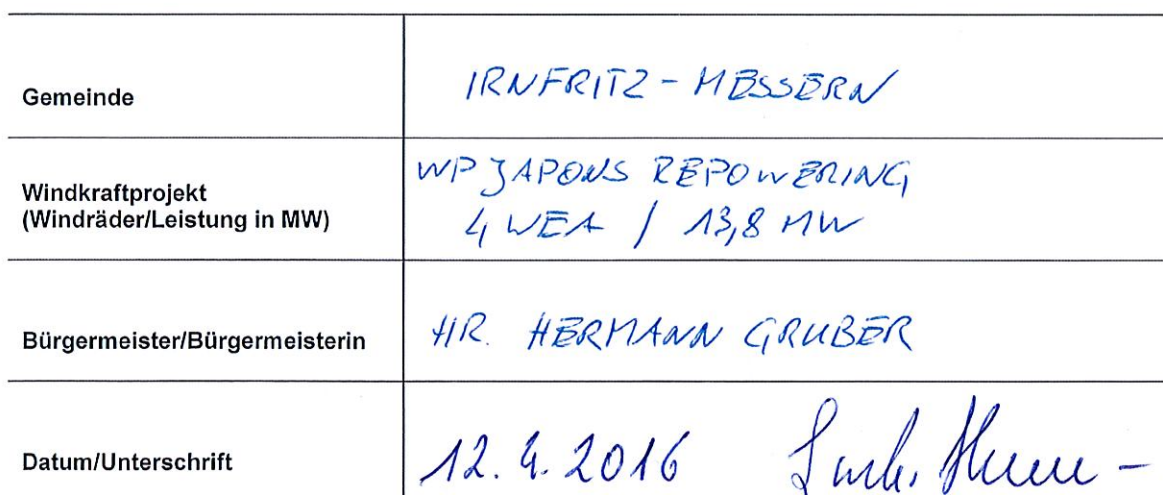 Gemeinde
IRNFRITZ - MESSERN
Windkraftprojekt
(Windräder/Leistung in MW)
WP JAPONS REPOWERING
4 WEA / 13,8 MW
Bürgermeister/Bürgermeisterin
HR. HERMANN GRUBER
Datum/Unterschrift
12.4.2016